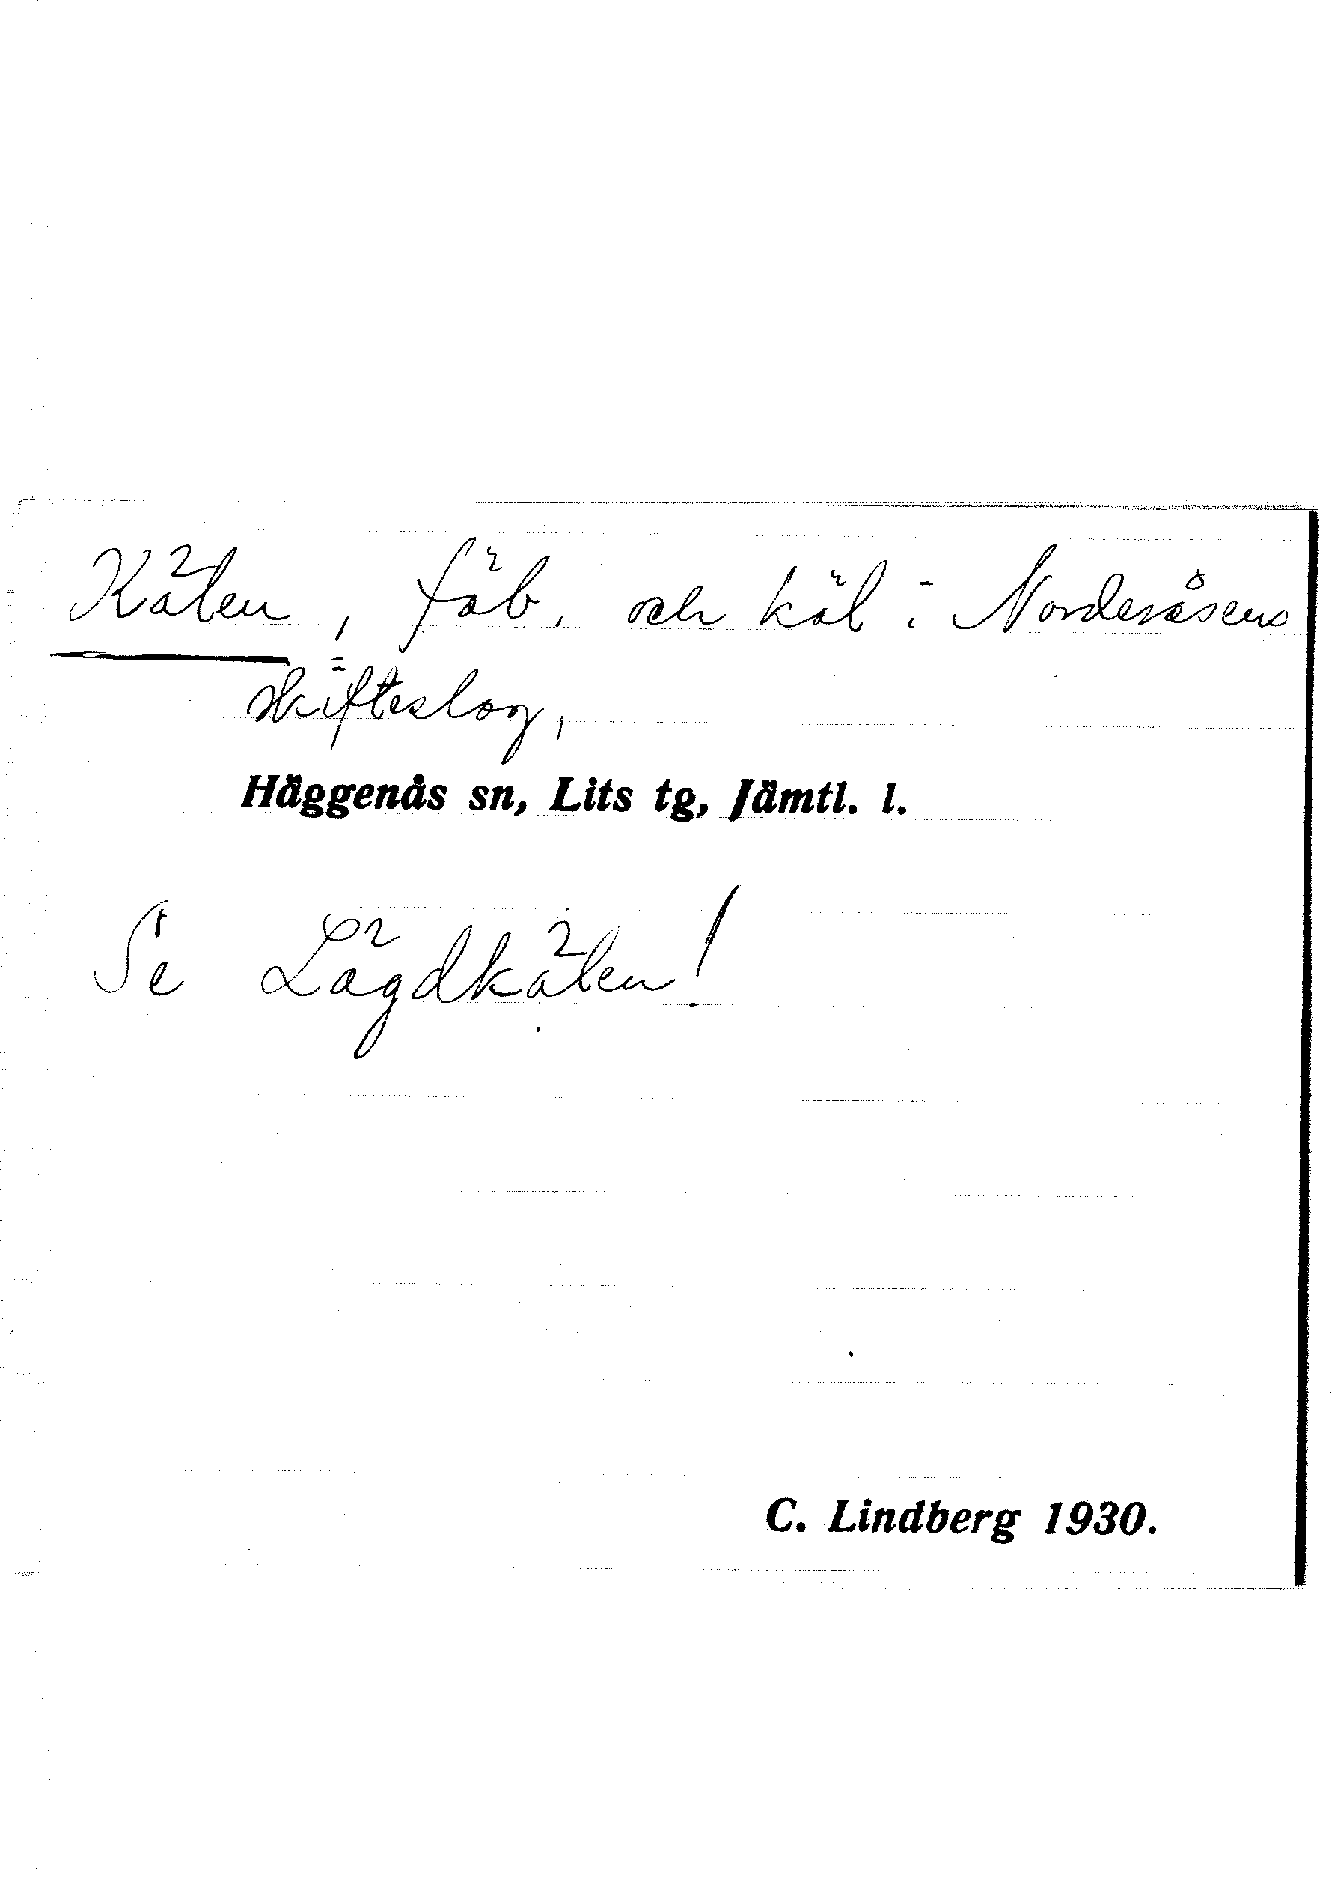 Kälen, fäb. och käl i Norderåsens
skifteslag,
Häggenås sn, Lits tg, Jämtl. l.
Se Lägdkälen!
C. Lindberg 1930.